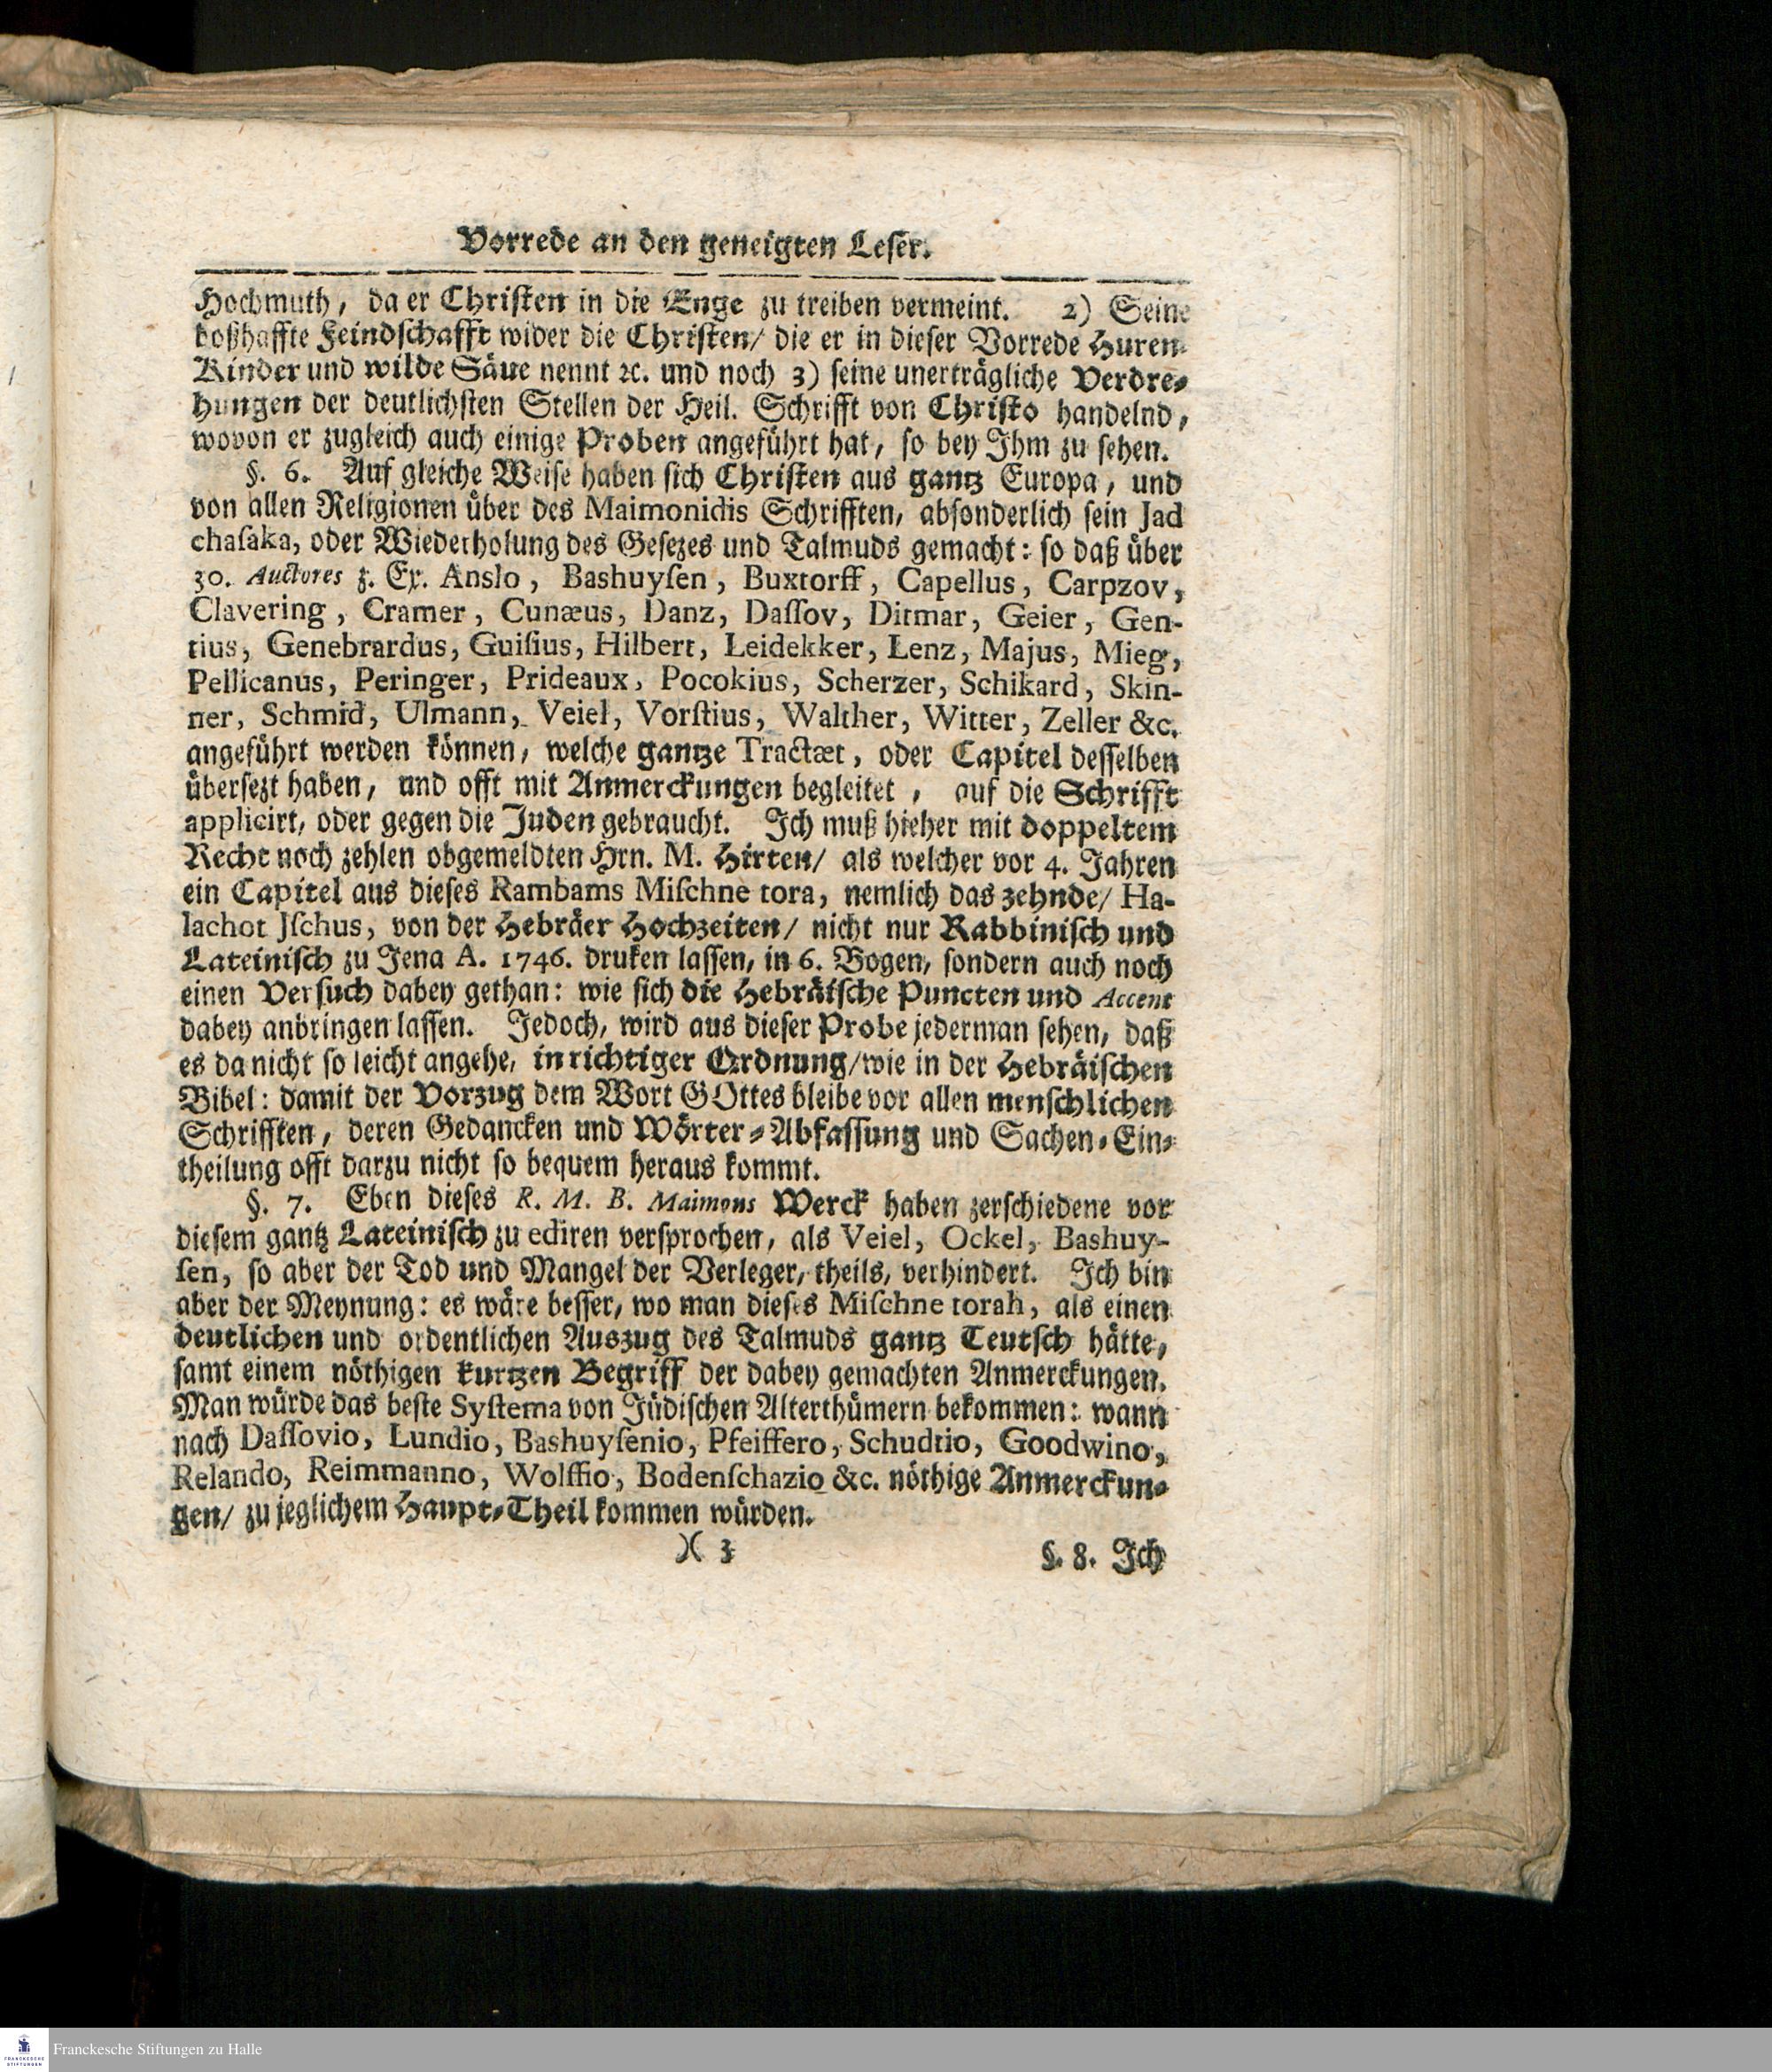 Vorrede an den geneigten Leser.
Hochmuth, da er Christen in die Enge zu treiben vermeint. 2) Seine
boßhaffte Feindschafft wider die Christen/ die er in dieser Vorrede Huren-
Kinder und wilde Säue nennt ꝛc. und noch 3) seine unerträgliche Verdre-
hungen der deutlichsten Stellen der Heil. Schrifft von Christo handelnd,
wovon er zugleich auch einige Proben angeführt hat, so bey Ihm zu sehen.
§. 6. Auf gleiche Weise haben sich Christen aus gantz Europa, und
von allen Religionen über des Maimonidis Schrifften, absonderlich sein Jad
chasaka, oder Wiederholung des Gesezes und Talmuds gemacht: so daß über
30. Auctores z. Ex. Anslo, Bashuysen, Buxtorff, Capellus, Carpzov,
Clavering, Cramer, Cunæus, Danz, Dassov, Ditmar, Geier, Gen-
tius, Genebrardus, Guisius, Hilbert, Leidekker, Lenz, Majus, Mieg,
Pellicanus, Peringer, Prideaux, Pocokius, Scherzer, Schikard, Skin-
ner, Schmid, Ulmann, Veiel, Vorstius, Walther, Witter, Zeller &c.
angeführt werden können, welche gantze Tractæt, oder Capitel desselben
übersezt haben, und offt mit Anmerckungen begleitet, auf die Schrifft
applicirt, oder gegen die Juden gebraucht. Ich muß hieher mit doppeltem
Recht noch zehlen obgemeldten Hrn. M. Hirten/ als welcher vor 4. Jahren
ein Capitel aus dieses Rambams Mischne tora, nemlich das zehnde/ Ha-
lachot Jschus, von der Hebräer Hochzeiten/ nicht nur Rabbinisch und
Lateinisch zu Jena A. 1746. druken lassen, in 6. Bogen, sondern auch noch
einen Versuch dabey gethan: wie sich die Hebräische Puncten und Accent
dabey anbringen lassen. Jedoch, wird aus dieser Probe jederman sehen, daß
es da nicht so leicht angehe, in richtiger Ordnung/ wie in der Hebräischen
Bibel: damit der Vorzug dem Wort GOttes bleibe vor allen menschlichen
Schrifften, deren Gedancken und Wörter-Abfassung und Sachen-Ein-
theilung offt darzu nicht so bequem heraus kommt.
§. 7. Eben dieses R. M. B. Maimons Werck haben zerschiedene vor
diesem gantz Lateinisch zu ediren versprochen, als Veiel, Ockel, Bashuy-
sen, so aber der Tod und Mangel der Verleger, theils, verhindert. Ich bin
aber der Meynung: es wäre besser, wo man dieses Mischne torah, als einen
deutlichen und ordentlichen Auszug des Talmuds gantz Teutsch hätte,
samt einem nöthigen kurtzen Begriff der dabey gemachten Anmerckungen.
Man würde das beste Systema von Jüdischen Alterthümern bekommen: wann
nach Dassovio, Lundio, Bashuysenio, Pfeiffero, Schudtio, Goodwino,
Relando, Reimmanno, Wolffio, Bodenschazio &c. nöthige Anmerckun-
gen/ zu jeglichem Haupt-Theil kommen würden.
)( 3 §. 8. Ich
FRANCKESCHE STIFTUNGEN
Franckesche Stiftungen zu Halle